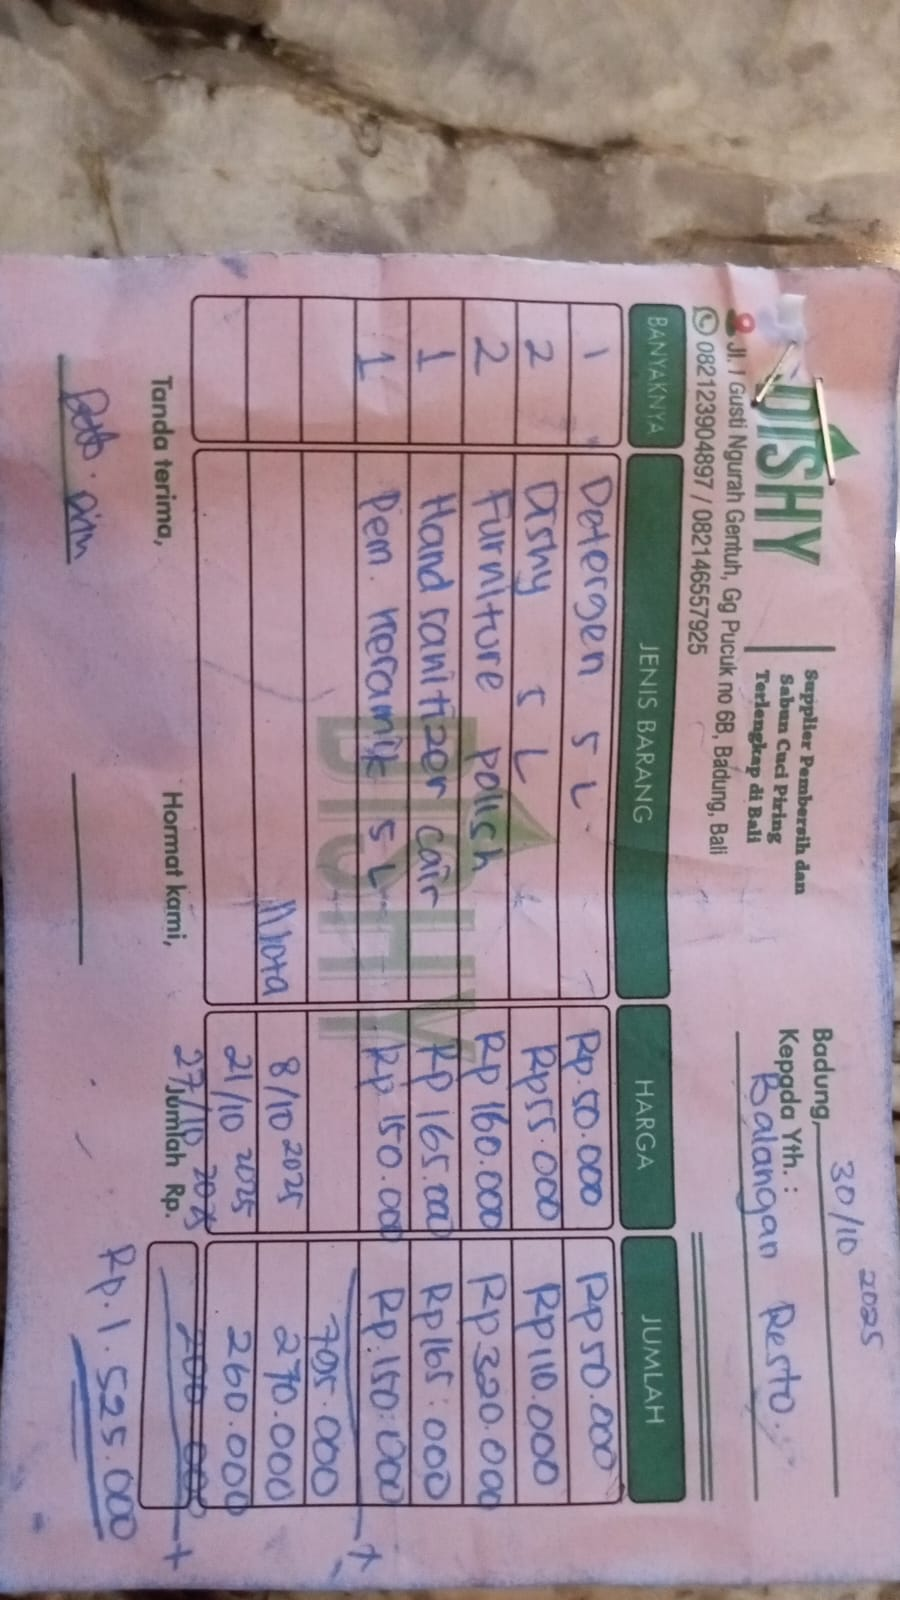 DISHY
Supplier Pembersih dan
Sabun Cuci Piring
Terlengkap di Bali
Jl. I Gusti Ngurah Gentuh, Gg Pucuk no 6B, Badung, Bali
082123904897 / 082146557925
Badung, 30/10 2025
Kepada Yth. :
Balangan Resto.
BANYAKNYA JENIS BARANG HARGA JUMLAH
1 Detergen 5 L. Rp. 50.000 Rp 50.000
2 Dishy 5 L Rp 55.000 Rp 110.000
2 Furniture polish Rp 160.000 Rp 320.000
1 Hand sanitizer cair Rp 165.000 Rp 165.000
1 Pem. Keramik 5 L Rp. 150.000 Rp. 150.000
DISHY
795.000
Nota 8/10 2025 270.000
21/10 2025 260.000
27/10 2025 200.000
Tanda terima, Hormat kami, Jumlah Rp.
Rp. 1.525.000